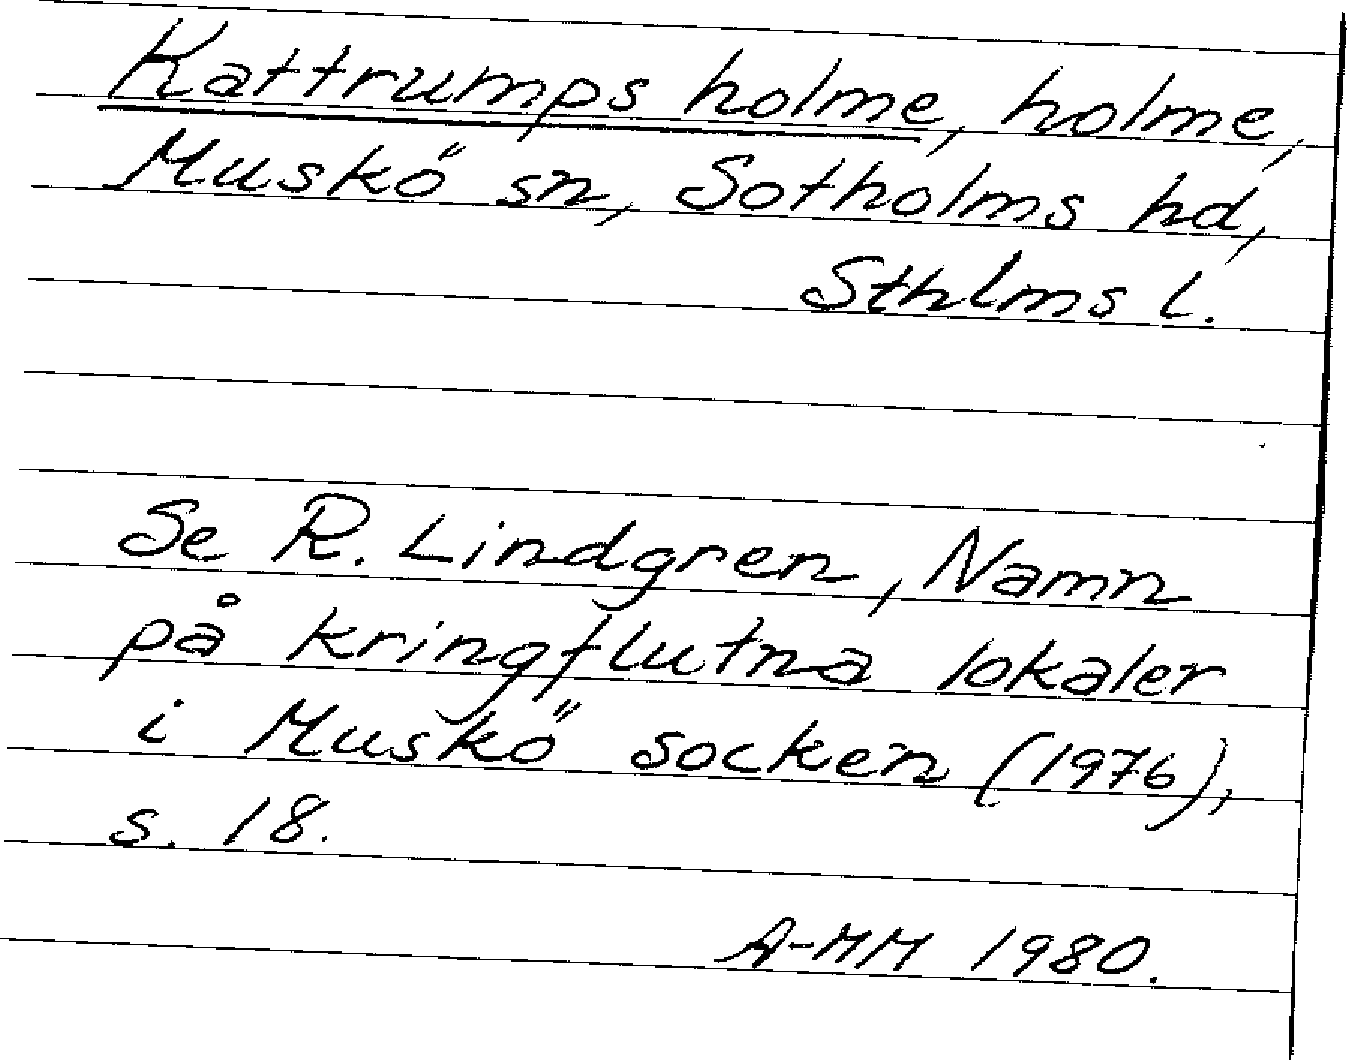 Kattrumps holme, holme,
Muskö sn, Sotholms hd,
Sthlms l.
Se R. Lindgren, Namn
på kringflutna lokaler
i Muskö socken (1976),
s. 18.
A-MM 1980.